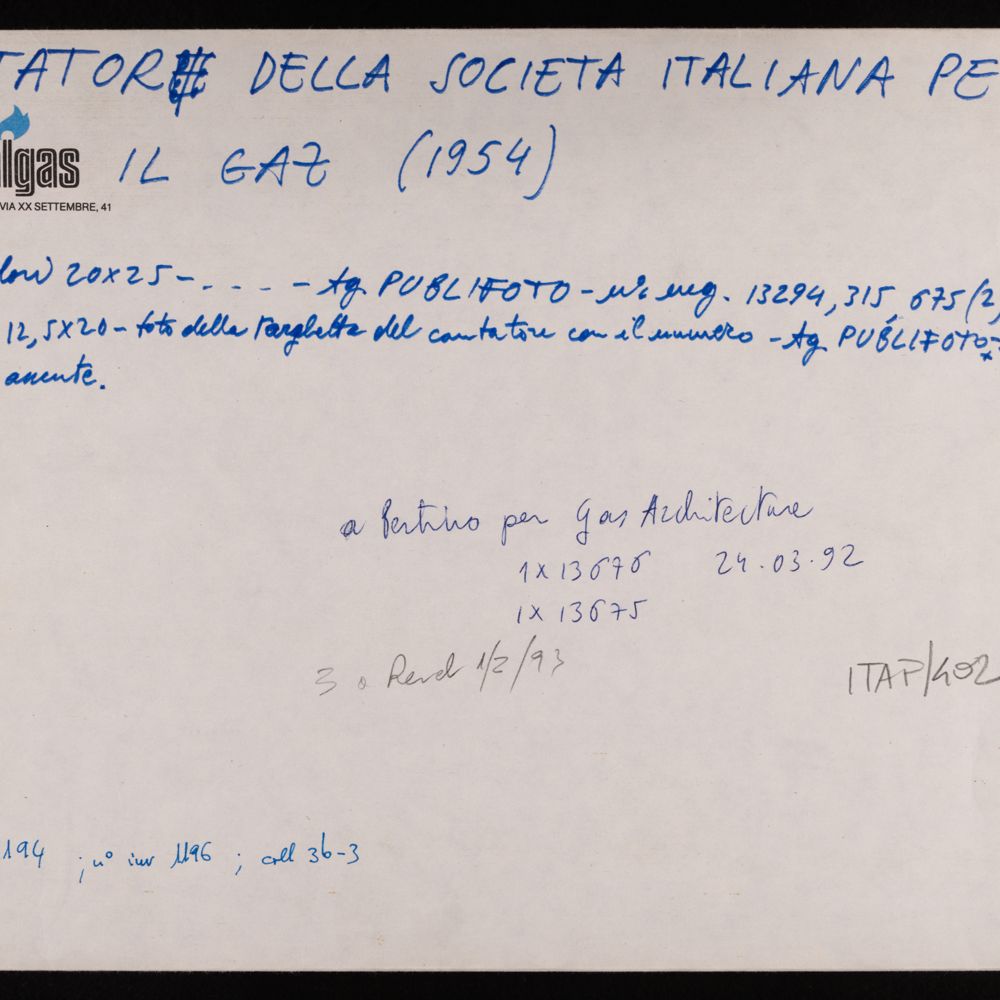 TATORE DELLA SOCIETA ITALIANA PE
lgas IL GAZ (1954)
VIA XX SETTEMBRE, 41
20x25 - . . . . - Ag. PUBLIFOTO - neg. 13294, 315, 675 (2,
12,5x20 - foto della targhetta del contatore con il numero - Ag. PUBLIFOTO -
a Bertino per Gas Architecture
1x 13676 24.03.92
1x 13675
3 a Rend 1/2/93
ITAP/402
194 ; n° inv 1196 ; coll 36-3